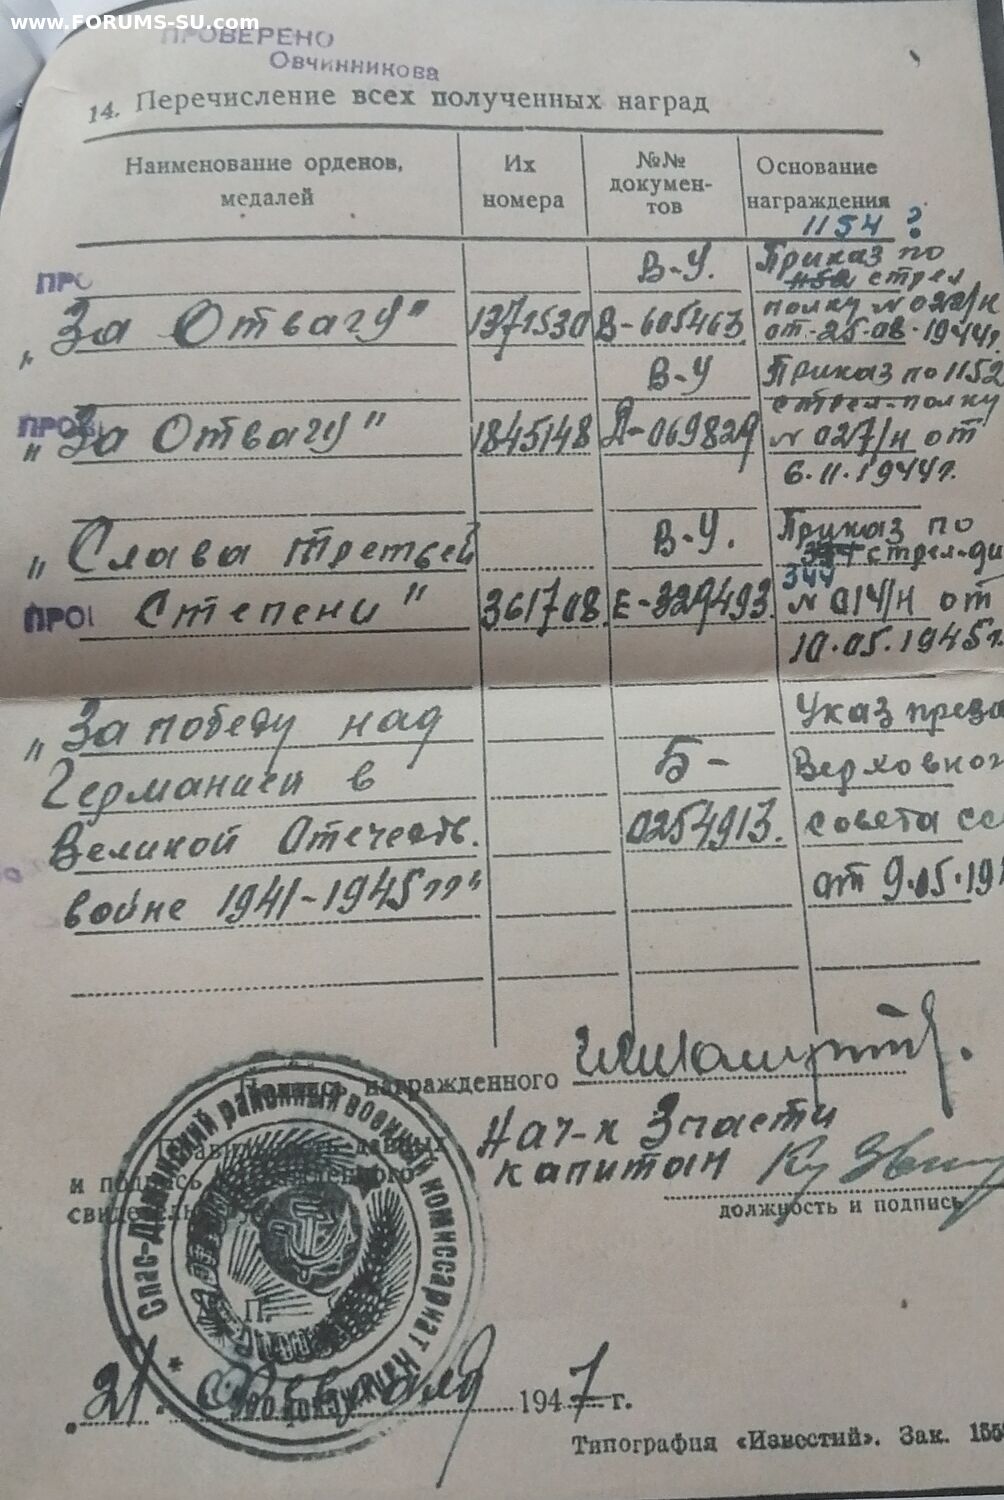 www.FORUMS-SU.com
ПРОВЕРЕНО
Овчинникова
14. Перечисление всех полученных наград
Наименование орденов, медалей
Их номера
№№ докумен-тов
Основание награждения
1154 ?
ПРО
„За Отвагу"
1371530
В-У.
В-605463
Приказ по
стрел
полку №022/н
от 25-08-1944г.
ПРОВ
„За Отвагу"
1845148
В-У
Д-069829
Приказ по 1152
стрел-полку
№027/н от
6.11.1944г.
„Слава третьей
ПРОІ
Степени"
361708.
В-У.
Е-329493.
Приказ по
стрел-ди
344
№014/н от
10.05.1945г.
„За победу над
Германией в
Великой Отечеств.
войне 1941-1945гг"
Б-
0254913.
Указ през
Верховног
совета сс
от 9.05.19
Подпись награжденного
Нач-к 3 части
капитан
должность и подпись
и подпись награжденного
свидетельствую
Спас-Деменский районный военный комиссариат
„21" Февраля 1947 г.
Типография «Известий». Зак. 155